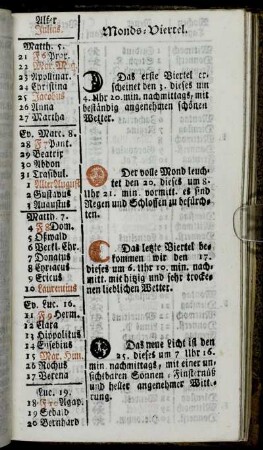 Alter
Julius.
Matth. 5.
21 F6 Prax.
22 Mar. Mag.
23 Apollinar.
24 Christina
25 Jacobus
26 Anna
27 Martha
Ev. Marc. 8.
28 F7 Pant.
29 Beatrix
30 Abdon
31 Trasibul.
1 Alter August
2 Gustavus
3 Augustus
Matth. 7.
4 F8 Dom.
5 Oßwald
6 Verkl. Chr.
7 Donatus
8 Cyriacus
9 Ericus
10 Laurentius
Ev. Luc. 16.
11 F9 Herm.
12 Clara
13 Hippolitus
14 Eusebius
15 Mar. Him.
16 Rochus
17 Verena
Luc. 19.
18 F10 Agap.
19 Sebald
20 Bernhard
Monds-Viertel.
Das erste Viertel er-
scheinet den 3. dieses um
4. Uhr 20. min. nachmittags, mit
beständig angenehmen schönen
Wetter.
Der volle Mond leuch-
tet den 20, dieses um 8-
Uhr 21. min. vormitt. es sind
Regen und Schlossen zu befürch-
ten.
Das letzte Viertel be-
kommen wir den 17.
dieses um 6. Uhr 10. min. nach-
mitt. mit hitzig und sehr trocke-
nen lieblichen Wetter.
Das neue Licht ist den
25. dieses um 7 Uhr 16.
min. nachmittags, mit einer un-
sichtbaren Sonnen-Finsternüß
und heller angenehmer Witt-
rung.